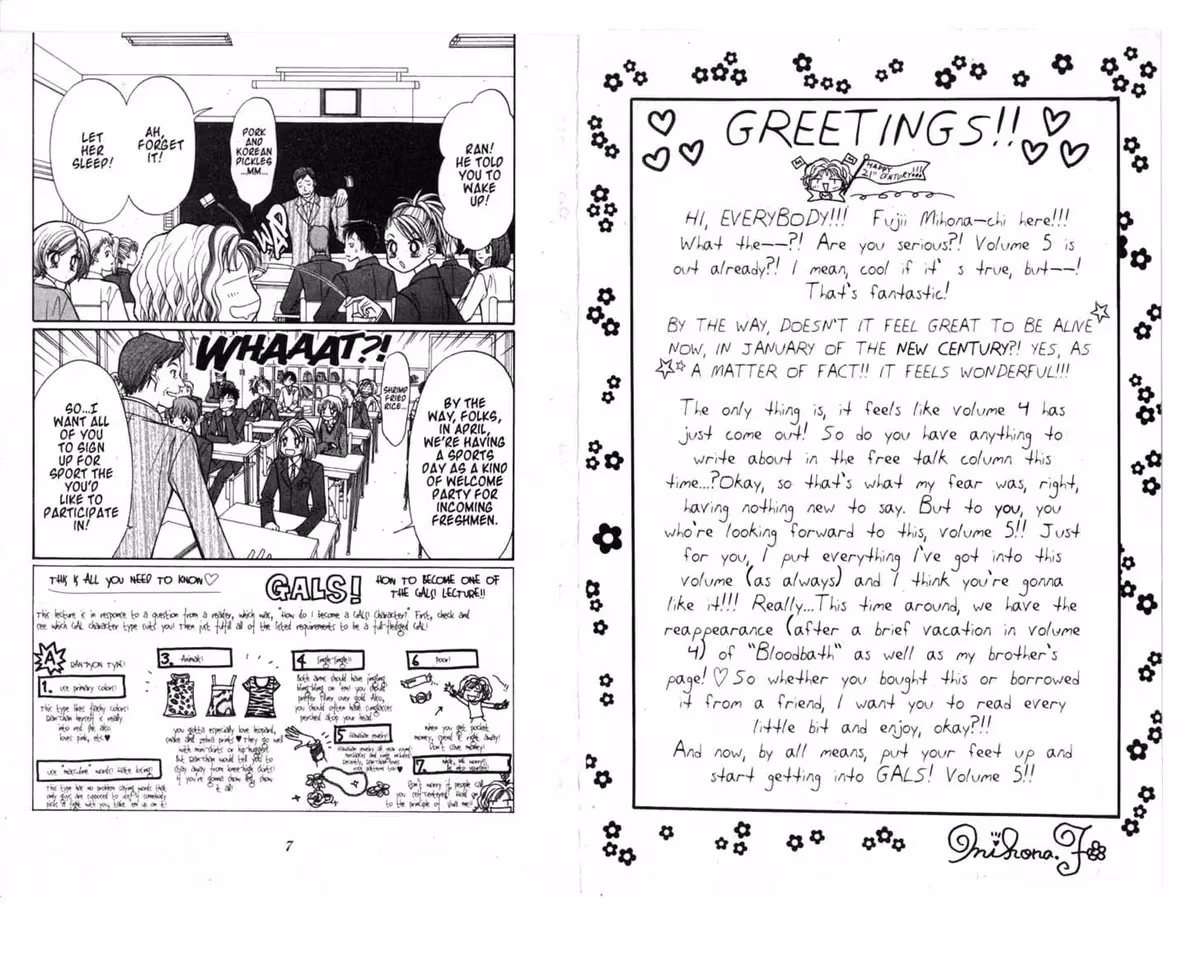 RAN!
HE TOLD
YOU TO
WAKE
UP!
PORK
AND
KOREAN
PICKLES
...MM...
WAP
AH,
FORGET
IT!
LET
HER
SLEEP!
WHAAAT?!
SHRIMP
FRIED
RICE...
BY THE
WAY, FOLKS,
IN APRIL,
WE'RE HAVING
A SPORTS
DAY AS A KIND
OF WELCOME
PARTY FOR
INCOMING
FRESHMEN.
SO...I
WANT ALL
OF YOU
TO SIGN
UP FOR
SPORT THE
YOU'D
LIKE TO
PARTICIPATE
IN!
THIS IS ALL YOU NEED TO KNOW♡
GALS!
HOW TO BECOME ONE OF
THE GALS! LECTURE!!
This lecture is in response to a question from a reader, which was, "How do I become a GALS! Character?" First, check and
see which GAL character type suits you! Then just fulfill all of the listed requirements to be a full-fledged GAL!
A
RAN-TYCON TYPE!
1. use primary colors!
This type likes flashy colors!
Ran-chan herself is really
into red. She also
loves pink, etc♥
use "masculine" words! Hate losing!
This type has no problem saying words that
only guys are supposed to use! If somebody
picks a fight with you, take 'em up on it!
3. Animals!
you gotta especially love leopard,
snake and zebra prints♥ They go well
with mini-skirts or hip-huggers!
But Ran-chan would tell you to
stay away from knee-high skirts!
If you're gonna show leg, show
it all!
4 Jingle-Jingle!!
Both arms should have jingling
bling-bling on 'em! you should
prefer silver over gold. Also,
you should often have sunglasses
perched atop your head.
5 Hawaiian jewelry!
6 Poor!
when you get pocket
money, spend it right away!
Don't save money!
7.
Don't worry if people call
you self-centered! Hold on
to the principle of Viva me!!
7
GREETINGS!!
HAPPY
21st CENTURY!!!
HI, EVERYBODY!!! Fujii Mihona-chi here!!!
What the--?! Are you serious?! Volume 5 is
out already?! I mean, cool if it' s true, but--!
That's fantastic!
BY THE WAY, DOESN'T IT FEEL GREAT TO BE ALIVE
NOW, IN JANUARY OF THE NEW CENTURY?! YES, AS
A MATTER OF FACT!! IT FEELS WONDERFUL!!!
The only thing is, it feels like volume 4 has
just come out! So do you have anything to
write about in the free talk column this
time...?Okay, so that's what my fear was, right,
having nothing new to say. But to you, you
who're looking forward to this, volume 5!! Just
for you, I put everything I've got into this
volume (as always) and I think you're gonna
like it!!! Really...This time around, we have the
reappearance (after a brief vacation in volume
4) of "Bloodbath" as well as my brother's
page! ♡ So whether you bought this or borrowed
it from a friend, I want you to read every
little bit and enjoy, okay?!!
And now, by all means, put your feet up and
start getting into GALS! Volume 5!!
Mihona.F